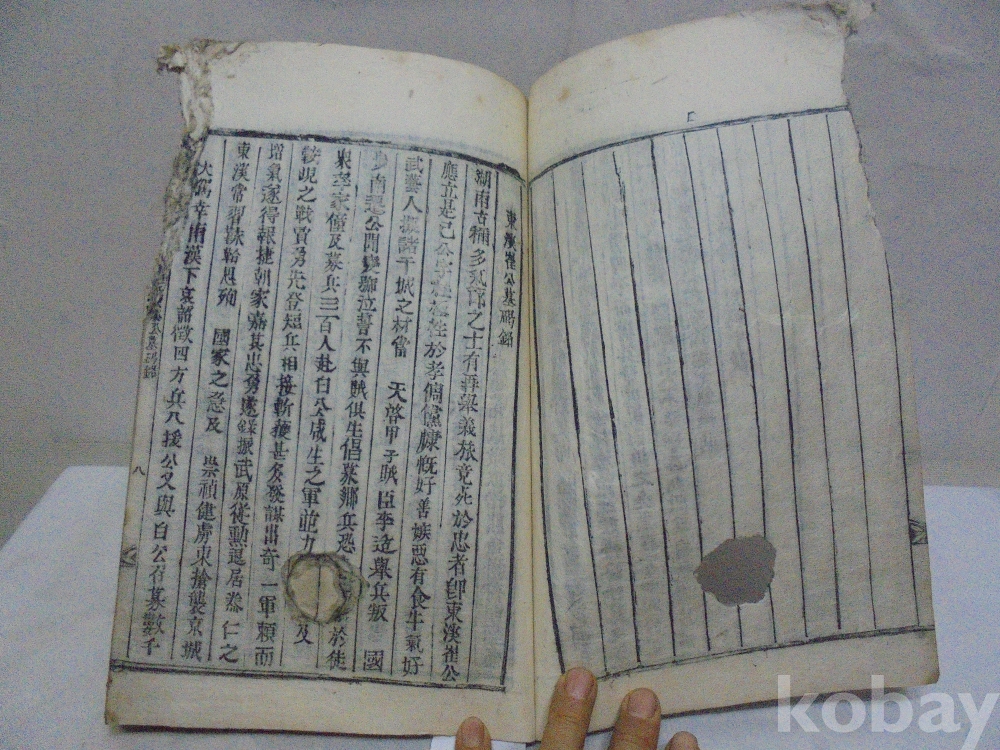 東溪崔公墓碣銘
湖南古稱多 之士有再擧義旅竟死於忠者卽東溪崔公
應立是已公 性於孝倜儻慷慨好善嫉惡有食牛氣好
武藝人 諸干城之材當 天啓甲子賊臣李适擧兵叛 國
南 公聞變 泣誓不與賊俱生倡募鄕兵恐 於徒
衆 家僮及募兵三百人赴白公 生之軍並力 及
鞍峴之戰賈勇先登短兵相接斬 甚多發謀出奇一軍賴而
增氣遂得報捷朝家嘉其忠勇遂錄振武原從勳退居 仁之
東溪常 思殉 國家之急及 崇禎建虜東搶襲京城
大駕幸南漢下哀詔徵四方兵入援公又與白公召募數千
墓碣銘
八
kobay